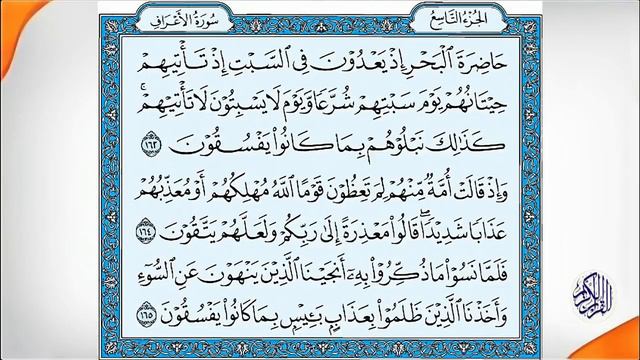 الجزء التاسع
سورة الأعراف
حَاضِرَةَ ٱلْبَحْرِ إِذْ يَعْدُونَ فِي ٱلسَّبْتِ إِذْ تَأْتِيهِمْ
حِيتَانُهُمْ يَوْمَ سَبْتِهِمْ شُرَّعًا وَيَوْمَ لَا يَسْبِتُونَ لَا تَأْتِيهِمْ ۚ
كَذَٰلِكَ نَبْلُوهُم بِمَا كَانُوا۟ يَفْسُقُونَ ١٦٣
وَإِذْ قَالَتْ أُمَّةٌ مِّنْهُمْ لِمَ تَعِظُونَ قَوْمًا ٱللَّهُ مُهْلِكُهُمْ أَوْ مُعَذِّبُهُمْ
عَذَابًا شَدِيدًا ۖ قَالُوا۟ مَعْذِرَةً إِلَىٰ رَبِّكُمْ وَلَعَلَّهُمْ يَتَّقُونَ ١٦٤
فَلَمَّا نَسُوا۟ مَا ذُكِّرُوا۟ بِهِۦٓ أَنجَيْنَا ٱلَّذِينَ يَنْهَوْنَ عَنِ ٱلسُّوٓءِ
وَأَخَذْنَا ٱلَّذِينَ ظَلَمُوا۟ بِعَذَابٍۭ بَـِٔيسٍۭ بِمَا كَانُوا۟ يَفْسُقُونَ ١٦٥
القرآن الكريم